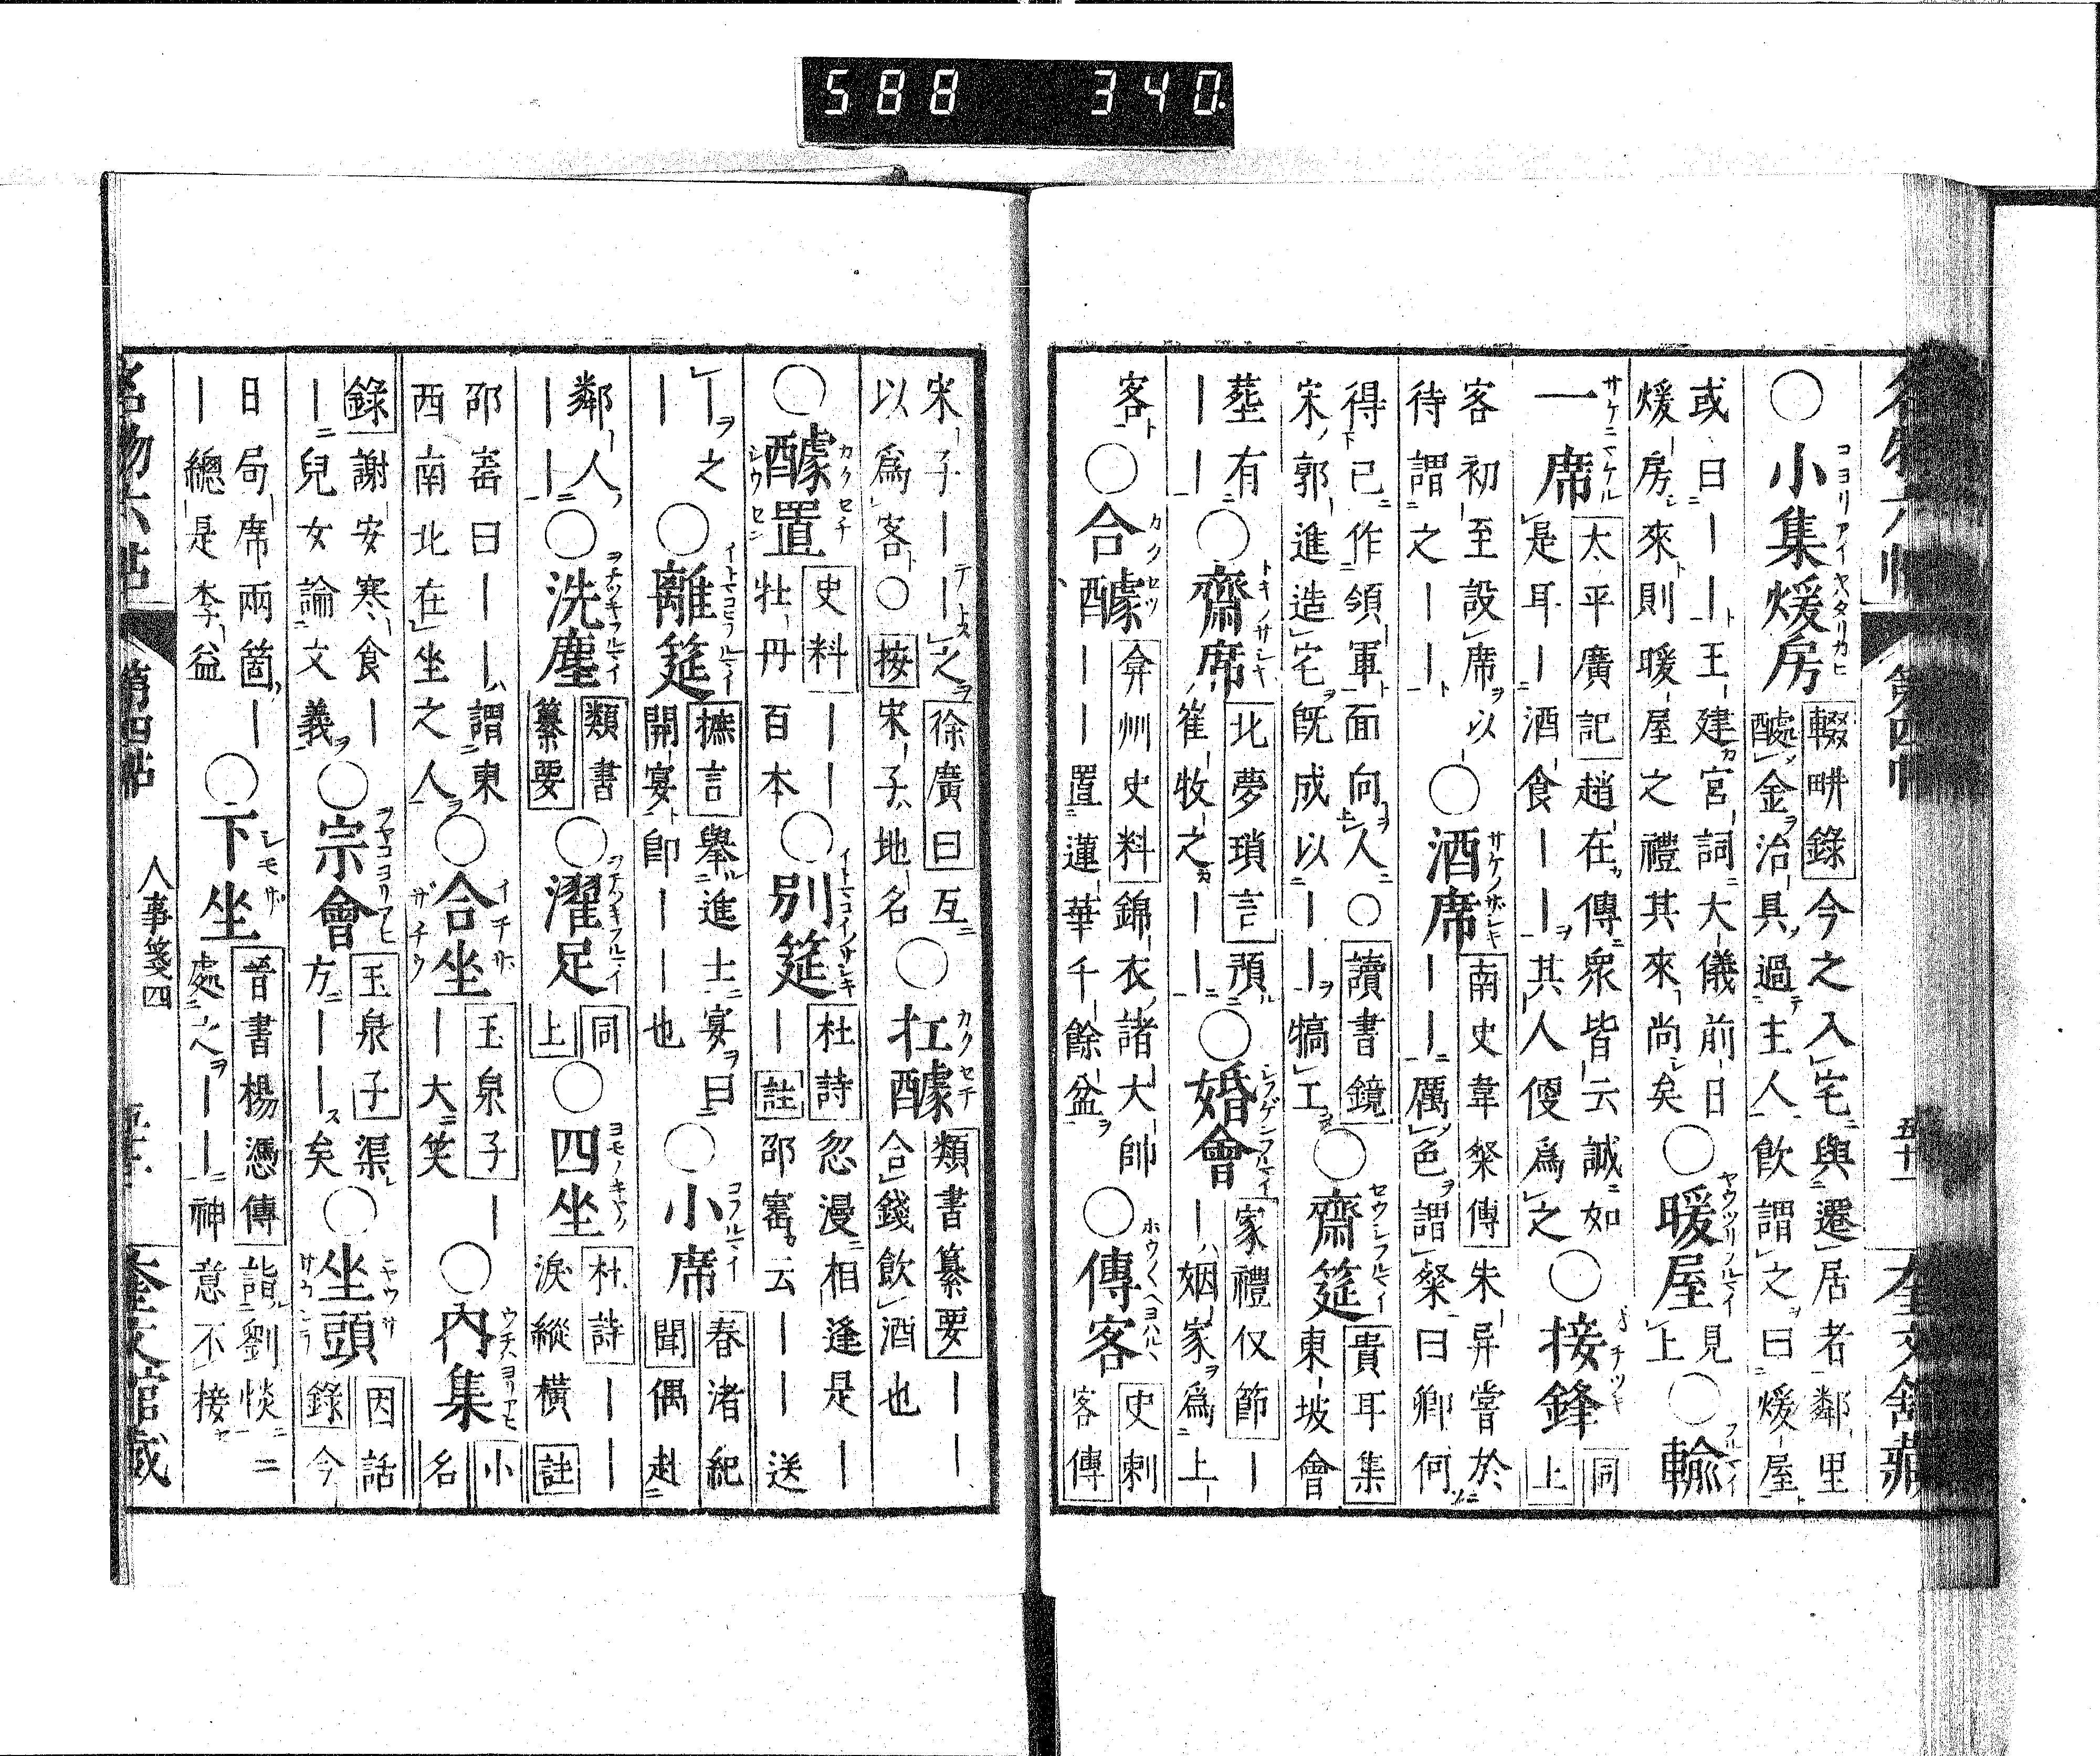 名物六帖 第四帖 五十一 奎文館藏
○小集煖房 輟畊錄 今之入宅與遷居者鄰里
醵金治具過主人飲謂之曰煖屋
或曰｜｜王建宮詞大儀前日
煖房來則暖屋之禮其來尚矣
○暖屋 見上 ○輸
一席 太平廣記 趙在傳衆皆云誠如
是耳｜酒食｜｜其人便爲之
○接鋒 同上
客初至設席以
待謂之｜｜
○酒席 南史韋粲傳 朱异嘗於
｜｜厲色謂粲曰卿何
得已作領軍面向人○讀書鏡
宋郭進造宅既成以｜｜犒工
○齋筵 貴耳集
東坡會
葬有
｜｜
○齋席 北夢瑣言 預
崔牧之｜｜
○婚會 家禮仪節 ｜
｜姻家爲上
客
○合醵 弇州史料 錦衣諸大帥
｜｜｜置蓮華千餘盆
○傳客 史刺
客傳
宋子｜｜之 徐廣曰 互
以爲客○按宋子地名
○扛醵 類書纂要 ｜｜
合錢飲酒也
○醵置 史料 ｜｜
牡丹百本
○別筵 杜詩 忽漫相逢是｜
｜ 註 邵寳云｜｜送
｜之
｜
○離筵 摭言 舉進士宴曰
開宴卽｜｜也
○小席 春渚紀
聞 偶赴
鄰人
｜｜
○洗塵 類書
纂要
○濯足 同上
○四坐 杜詩 ｜｜
淚縱横 註
邵寳曰｜｜謂東
西南北在坐之人
○合坐 玉泉子 ｜
｜大笑
○內集 小
名
錄 謝安寒食｜
｜兒女論文義
○宗會 玉泉子 渠
方｜｜矣
○坐頭 因話
錄 今
日局席兩箇｜
｜總是李益
○下坐 晉書楊憑傳 詣劉惔二
處之｜｜神意不接
名物六帖 第四帖 人事箋四 奎文館藏
588 340